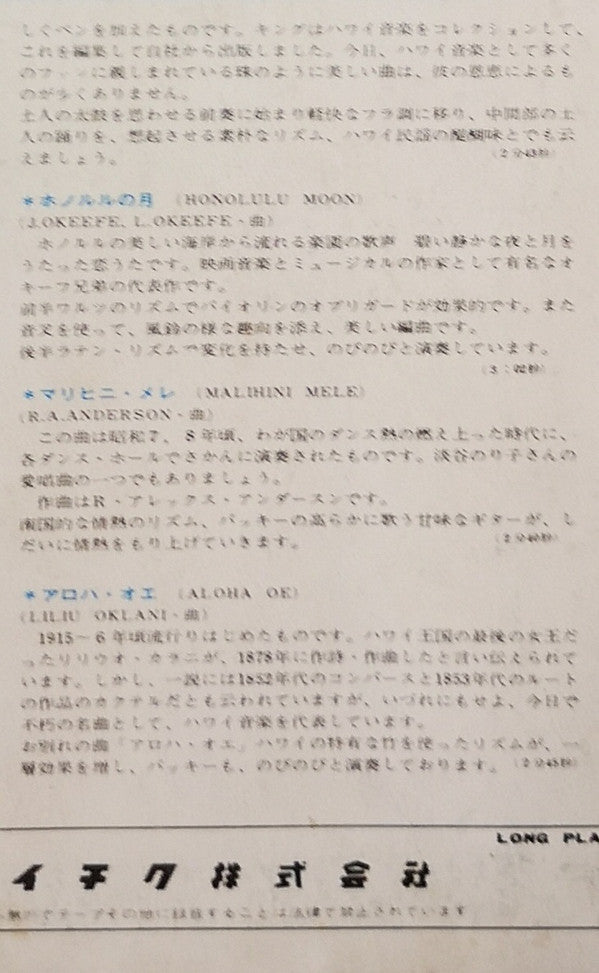 しくペンを加えたものです。キングはハワイ音楽をコレクションして、
これを編集して自社から出版しました。今日、ハワイ音楽として多く
のファンに親しまれている珠のように美しい曲は、彼の恩恵によるも
のが少くありません。
土人の太鼓を思わせる前奏に始まり軽快なフラ調に移り、中間部の土
人の踊りを、想起させる素朴なリズム、ハワイ民謡の醍醐味とでも云
えましょう。
(2分43秒)
＊ホノルルの月 (HONOLULU MOON)
(J.OKEEFE, L.OKEEFE・曲)
ホノルルの美しい海岸から流れる楽園の歌声 碧い静かな夜と月を
うたった恋うたです。映画音楽とミュージカルの作家として有名なオ
キーフ兄弟の代表作です。
前半ワルツのリズムでバイオリンのオブリガードが効果的です。また
音叉を使って、風鈴の様な趣向を添え、美しい編曲です。
後半ラテン・リズムで変化を持たせ、のびのびと演奏しています。
＊マリヒニ・メレ (MALIHINI MELE)
(R.A.ANDERSON・曲)
この曲は昭和7、8年頃、わが国のダンス熱の燃え上った時代に、
各ダンス・ホールでさかんに演奏されたものです。淡谷のり子さんの
愛唱曲の一つでもありましょう。
作曲はR・アレックス・アンダースンです。
南国的な情熱のリズム、バッキーの高らかに歌う甘味なギターが、し
だいに情熱をもり上げていきます。
＊アロハ・オエ (ALOHA OE)
(LILIU OKLANI・曲)
1915〜6年頃流行りはじめたものです。ハワイ王国の最後の女王だ
ったリリウオ・カラニが、1878年に作詩・作曲したと言い伝えられて
います。しかし、一説には1852年代のコンバースと1853年代のルート
の作品のカクテルだとも云われていますが、いづれにもせよ、今日で
不朽の名曲として、ハワイ音楽を代表しています。
お別れの曲「アロハ・オエ」ハワイの特有な竹を使ったリズムが、一
層効果を増し、バッキーも、のびのびと演奏しております。(2分45秒)
LONG PLA
イチク株式会社
テープその他に録音することは法律で禁止されています